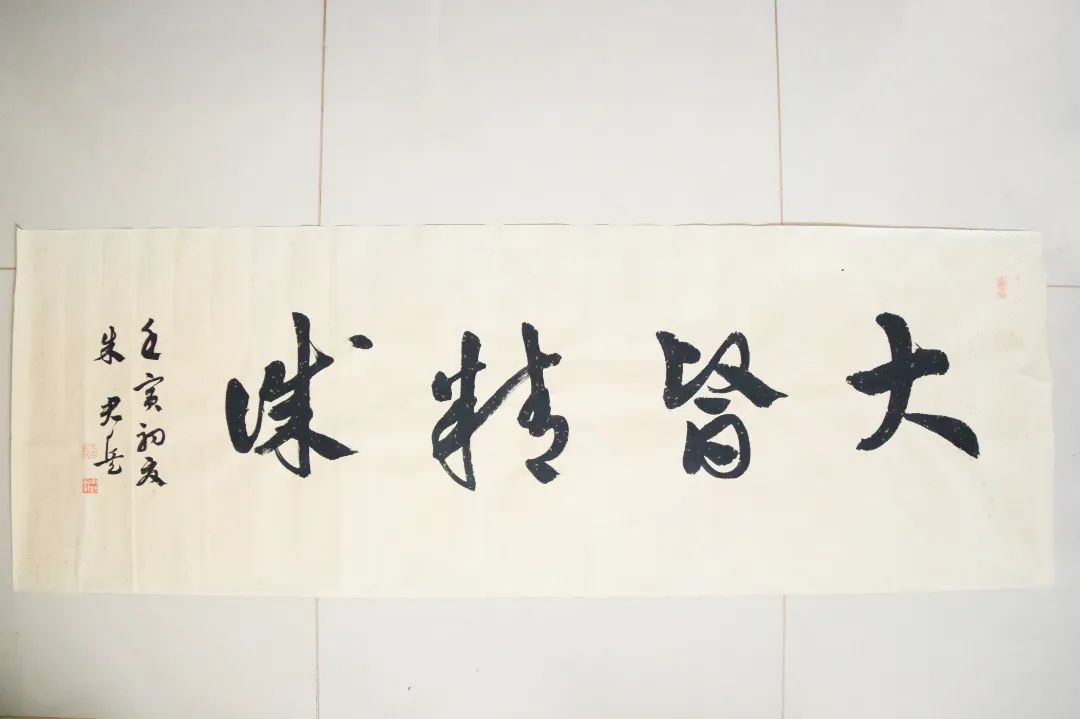 大醫精誠
壬寅初夏
朱